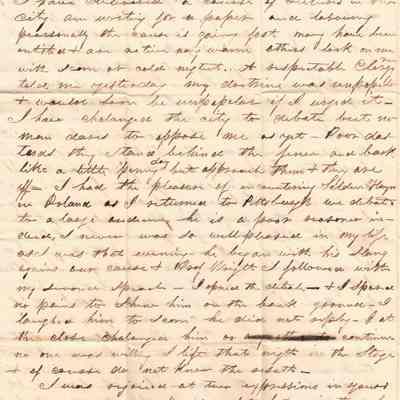 I have delivered a course of lectures in this
city am writing for a paper and laboring
personally the cause is going fast many have been
enlisted & are active and warm others look on me
with scorn at cold neglect... A respectable Clergyman
told me yesterday my doctrine was unpopular
& would soon be unpopular if I urged it
I have chalanged the city to debate but no
man dares to oppose me as yet — Poor das
tards they stand behind the fence and bark
like a little penny dog but approach them & they are
off — I had the pleasure of encountering
in as I returned to Pittsburgh we debated
to a large audience he is a poor reasoner in-
deed, I never was so well pleased in my life
as I was that evening he began with his slang
against our cause & I followed with
my Speech — I opened the debate — & I spared
no pains to show him on the back ground — I
laughed him to scorn he did not reply — I at
the close chalanged him or to continue
no one was willing I left that night on the Stage
& of course do not know the result —
I was rejoiced at two expressions in yours